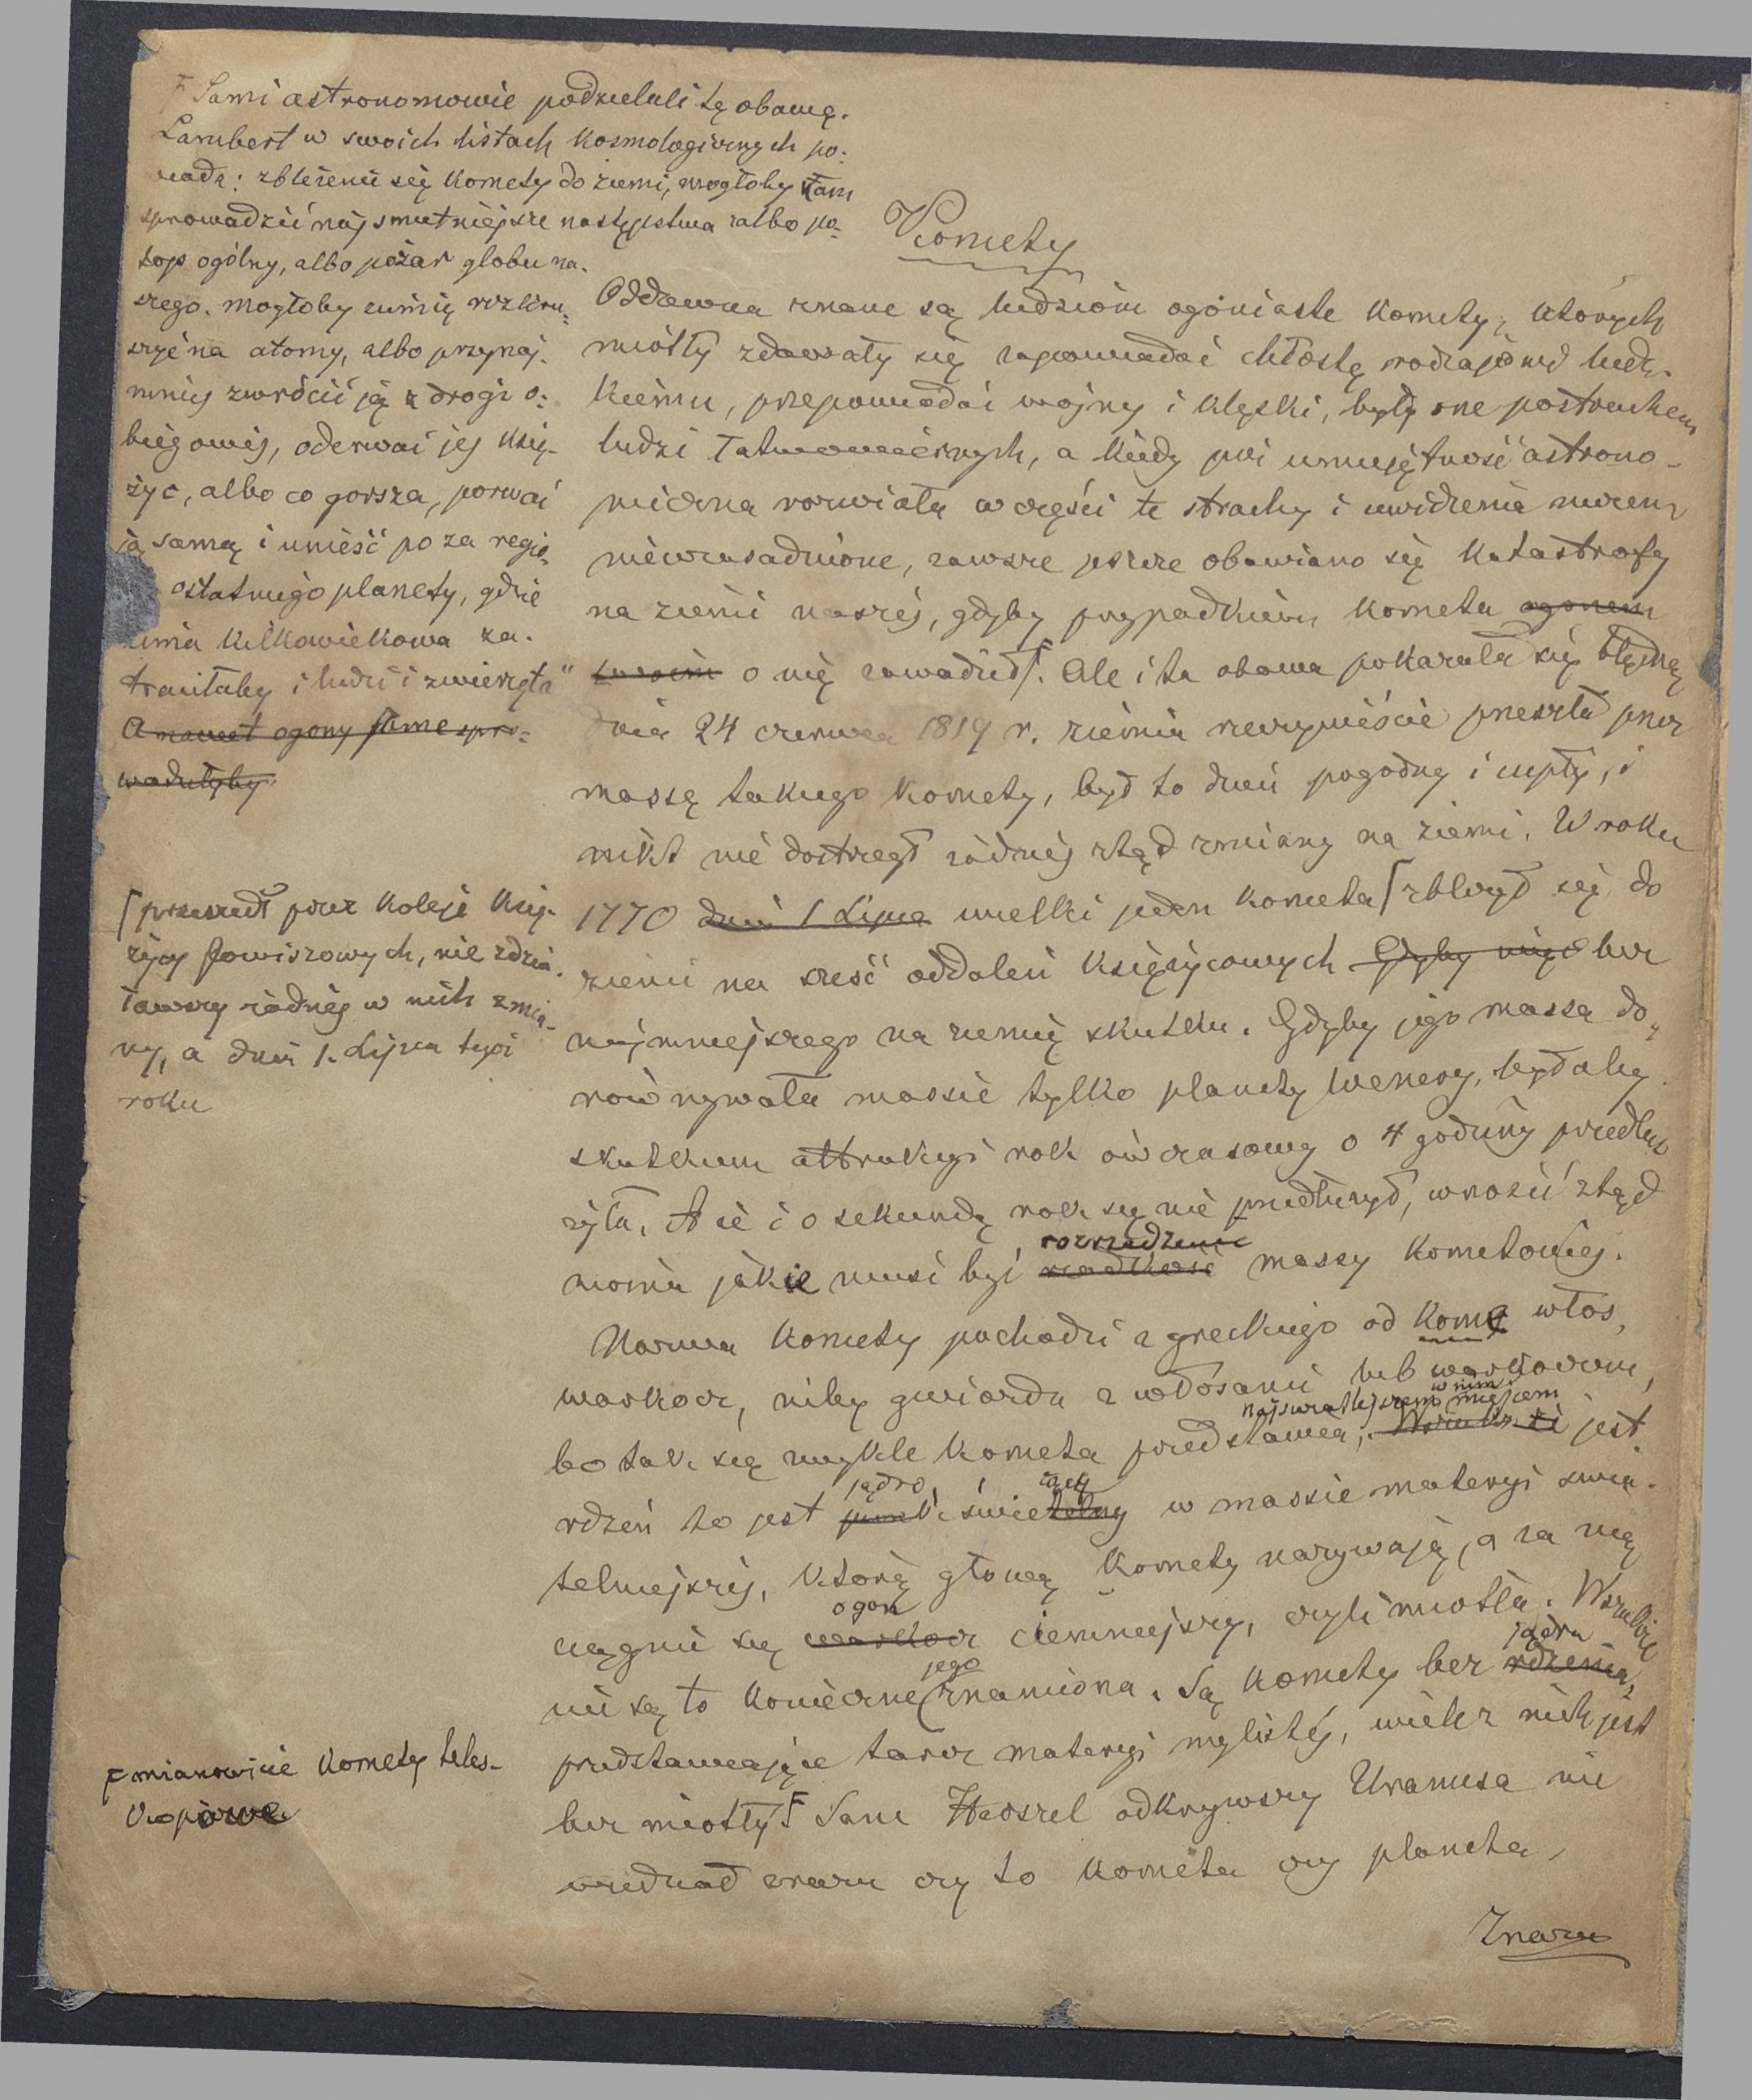 F Sami astronomowie podzielali tę obawę.
Lambert w swoich listach kosmologicznych po-
wiada: zbliżenie się komety do ziemi, mogłoby tam
sprowadzić najsmutniejsze następstwa albo po-
top ogólny, albo pożar globu na-
szego. mogłoby ziemię rozkru-
szyć na atomy, albo przynaj-
mniej zwrócić ją z drogi o-
biegowej, oderwać jej Księ-
życ, albo co gorsza, porwać
ją samą i unieść po za regio-
ostatniego planety, gdzie
zima kilkowiekowa za-
traciłaby i ludzi i zwierzęta"
A nawet ogony same spro-
wadziłyby
Komety
Oddawna znane są ludziom ogoniaste komety, których
miotły zdawały się zapowiadać chłostę rodzajowi ludz-
kiemu, przepowiadać wojny i klęski, były one postrachem
ludzi łatwowiernych, a kiedy już umiejętność astrono-
miczna rozwiała w części te strachy i uwidzenia niczem
nieuzasadnione, zawsze jeszcze obawiano się katastrofy
na ziemi naszej, gdyby przypadkiem kometa ogonem
swoim o nię zawadził F. Ale i ta obawa pokazała się błędną
dnia 24 czerwca 1819 r. ziemia rzeczywiście przeszła przez
massę takiego komety, był to dzień pogodny i ciepły, i
nikt nie dostrzegł żadnej ztąd zmiany na ziemi. W roku
1770 dnia 1 Lipca wielki jeden kometa ⌈ zbliżył się do
ziemi na sześć oddaleń księżycowych Gdyby więc bez
najmniejszego na ziemię skutku. Gdyby jego massa do-
równywała massie tylko planety Wenery, byłaby
skutkiem attrakcyi rok ówczasowy o 4 godziny przedłu-
żyła. A że i o sekundę rok się nie przedłużył, wnosić ztąd
można jakie musi być rzadkość rozrzedzenie massy kometowej.
⌈ przeszedł przez koleje Księ-
życy Jowiszowych, nie zdzia-
ławszy żadnej w nich zmia-
ny, a dnia 1. Lipca tegoż
roku
Nazwa komety pochodzi z greckiego od kome włos,
warkocz, niby gwiazda z włosami lub warkoczem,
bo tak się zwykle kometa przedstawia; najswiatlejszem w nim miejscem jest
rdzeń to jest punkt jądro, świetelny w massie materyi swia-
telniejszej, którą głową komety nazywają, a za nią
ciągnie się warkocz ogon ciemniejszy, czyli miotła. Wszakże
nie są to konieczne jego znamiona. Są komety bez rdzenia, jądra
przedstawiające tarcz materyi mglistej, wiele z nich jest
bez miotły F Sam Herszel odkrywszy Uranusa nie
wiedział zrazu czy to kometa czy planeta,
F mianowicie komety teles-
kopiowe
Znaru